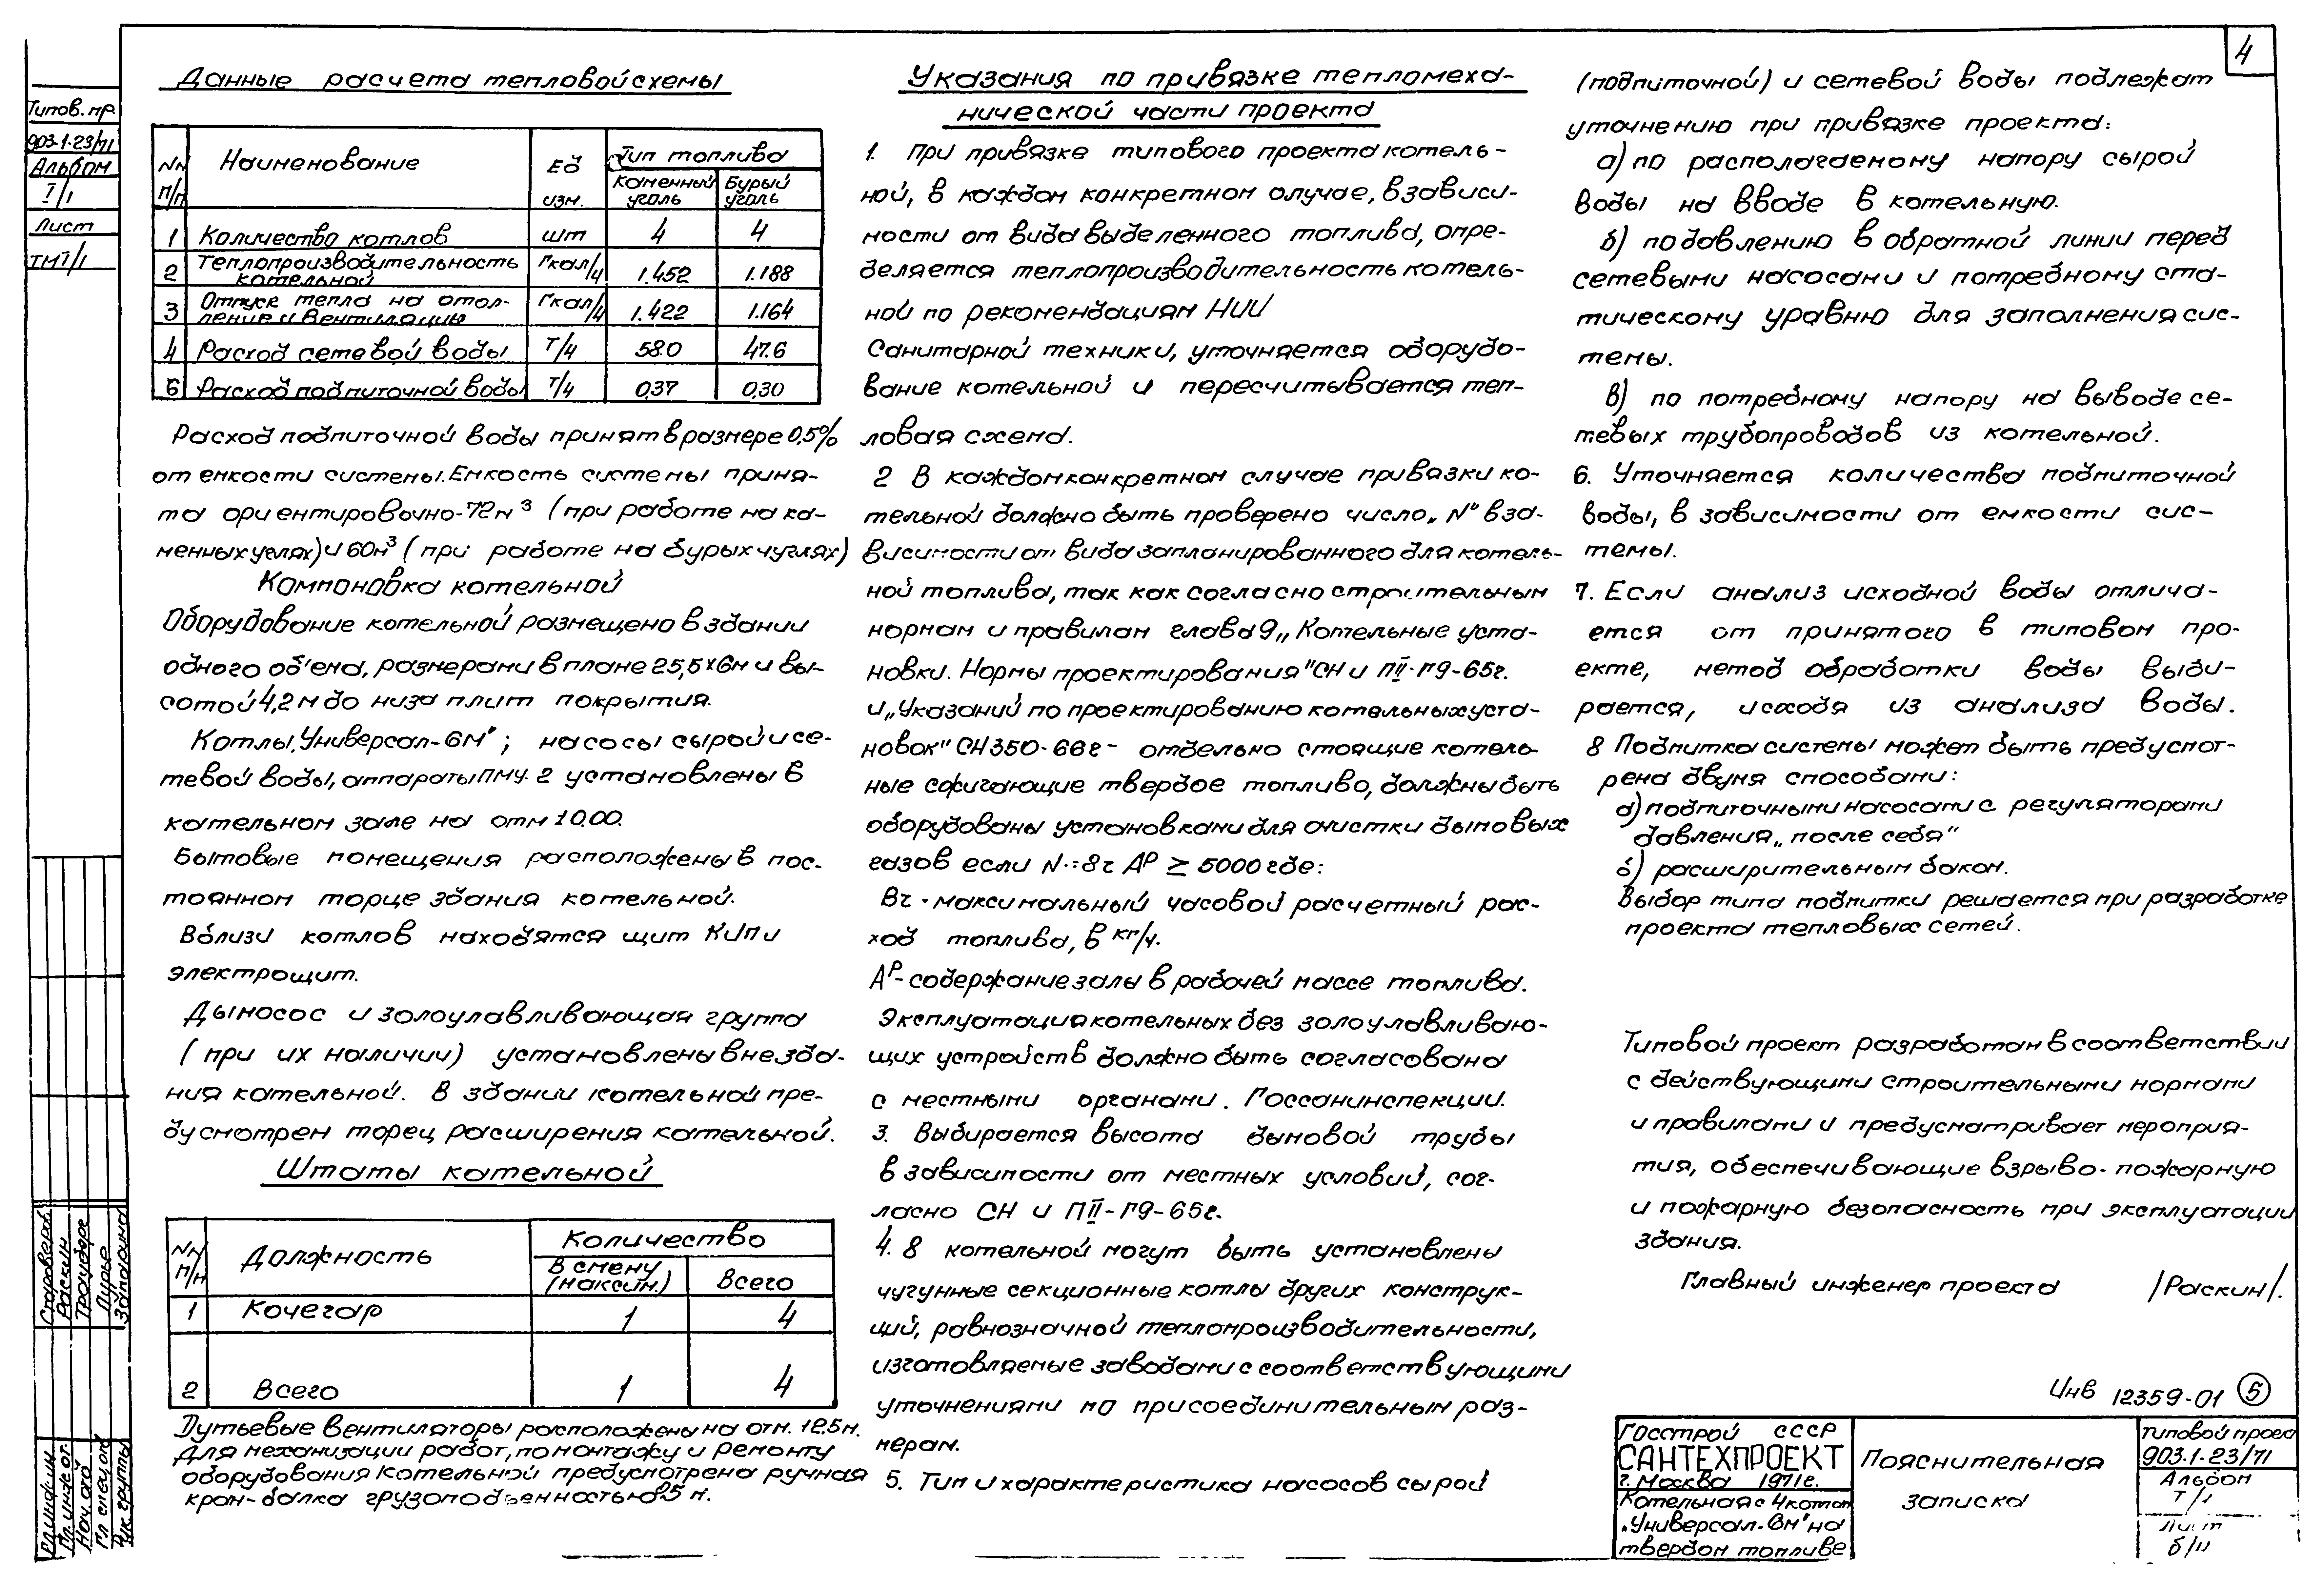 4
Типов. пр.
903-1-23/71
Альбом
I/1
Лист
ТМI/1
Данные расчета тепловой схемы
NN п/п | Наименование | Ед изм. | Тип топлива
Каменный уголь | Бурый уголь
1 | Количество котлов | шт | 4 | 4
2 | Теплопроизводительность котельной | Гкал/ч | 1.452 | 1.188
3 | Отпуск тепла на отопление и вентиляцию | Гкал/ч | 1.422 | 1.164
4 | Расход сетевой воды | т/ч | 58.0 | 47.6
5 | Расход подпиточной воды | т/ч | 0,37 | 0,30
Расход подпиточной воды принят в размере 0,5%
от емкости системы. Емкость системы приня-
та ориентировочно-72м³ (при работе на ка-
менных углях) и 60м³ (при работе на бурых углях)
Компоновка котельной
Оборудование котельной размещено в здании
одного объема, размерами в плане 25,5х6м и вы-
сотой 4,2м до низа плит покрытия.
Котлы „Универсал-6м"; насосы сырой и се-
тевой воды, аппараты ПМУ-2 установлены в
котельном зале на отм ±0.00.
Бытовые помещения расположены в пос-
тоянном торце здания котельной.
Вблизи котлов находятся щит КИП и
электрощит.
Дымосос и золоулавливающая группа
(при их наличии) установлены вне зда-
ния котельной. В здании котельной пре-
дусмотрен торец расширения котельной.
Штаты котельной
NN п/п | Должность | Количество
В смену (максим.) | Всего
1 | Кочегар | 1 | 4
2 | Всего | 1 | 4
Дутьевые вентиляторы расположены на отм. 12.5м.
Для механизации работ, по монтажу и ремонту
оборудования котельной предусмотрена ручная
кран-балка грузоподъемностью 0.5 т.
Указания по привязке тепломеха-
нической части проекта
1. При привязке типового проекта котель-
ной, в каждом конкретном случае, в зависи-
мости от вида выделенного топлива, опре-
деляется теплопроизводительность котель-
ной по рекомендациям НИИ
Санитарной техники, уточняется оборудо-
вание котельной и пересчитывается теп-
ловая схема.
2 В каждом конкретном случае привязки ко-
тельной должно быть проверено число „N" в за-
висимости от вида запланированного для котель-
ной топлива, так как согласно строительным
нормам и правилам глава 9 „Котельные уста-
новки. Нормы проектирования" СН и П II-Г9-65г.
и „Указаний по проектированию котельных уста-
новок" СН 350-66г- отдельно стоящие котель-
ные сжигающие твердое топливо, должны быть
оборудованы установками для очистки дымовых
газов если N=Вг Aᴾ ≥ 5000 где:
Вг - максимальный часовой расчетный рас-
ход топлива, в кг/ч.
Aᴾ-содержание золы в рабочей массе топлива.
Эксплуатация котельных без золоулавливаю-
щих устройств должно быть согласована
с местными органами. Госсанинспекции.
3. Выбирается высота дымовой трубы
в зависимости от местных условий, сог-
ласно СН и П II-Г9-65г.
4. В котельной могут быть установлены
чугунные секционные котлы других конструк-
ций, равнозначной теплопроизводительности,
изготовляемые заводами с соответствующими
уточнениями по присоединительным раз-
мерам.
5. Тип и характеристика насосов сырой
(подпиточной) и сетевой воды подлежат
уточнению при привязке проекта:
а) по располагаемому напору сырой
воды на вводе в котельную.
б) по давлению в обратной линии перед
сетевыми насосами и потребному ста-
тическому уравню для заполнения сис-
темы.
в) по потребному напору на выводе се-
тевых трубопроводов из котельной.
6. Уточняется количество подпиточной
воды, в зависимости от емкости сис-
темы.
7. Если анализ исходной воды отлича-
ется от принятого в типовом про-
екте, метод обработки воды выби-
рается, исходя из анализа воды.
8 Подпитка системы может быть предусмот-
рена двумя способами:
а) подпиточными насосами с регуляторами
давления „после себя"
б) расширительным баком.
Выбор типа подпитки решается при разработке
проекта тепловых сетей.
Типовой проект разработан в соответствии
с действующими строительными нормами
и правилами и предусматривает мероприя-
тия, обеспечивающие взрыво-пожарную
и пожарную безопасность при эксплуатации
здания.
Главный инженер проекта /Раскин/.
Инв 12359-01 5
Госстрой СССР
САНТЕХПРОЕКТ
г. Москва 1971г.
Котельная с 4 котлам
„Универсал-6м" на
твердом топливе
Пояснительная
записка
Типовой проект
903-1-23/71
Альбом
I/1
Лист
б/н
Староверов
Раскин
Лурье
Гл. инж. ин.
Гл. инж. от.
Нач. отд.
Гл. спец. отд
Рук. группы